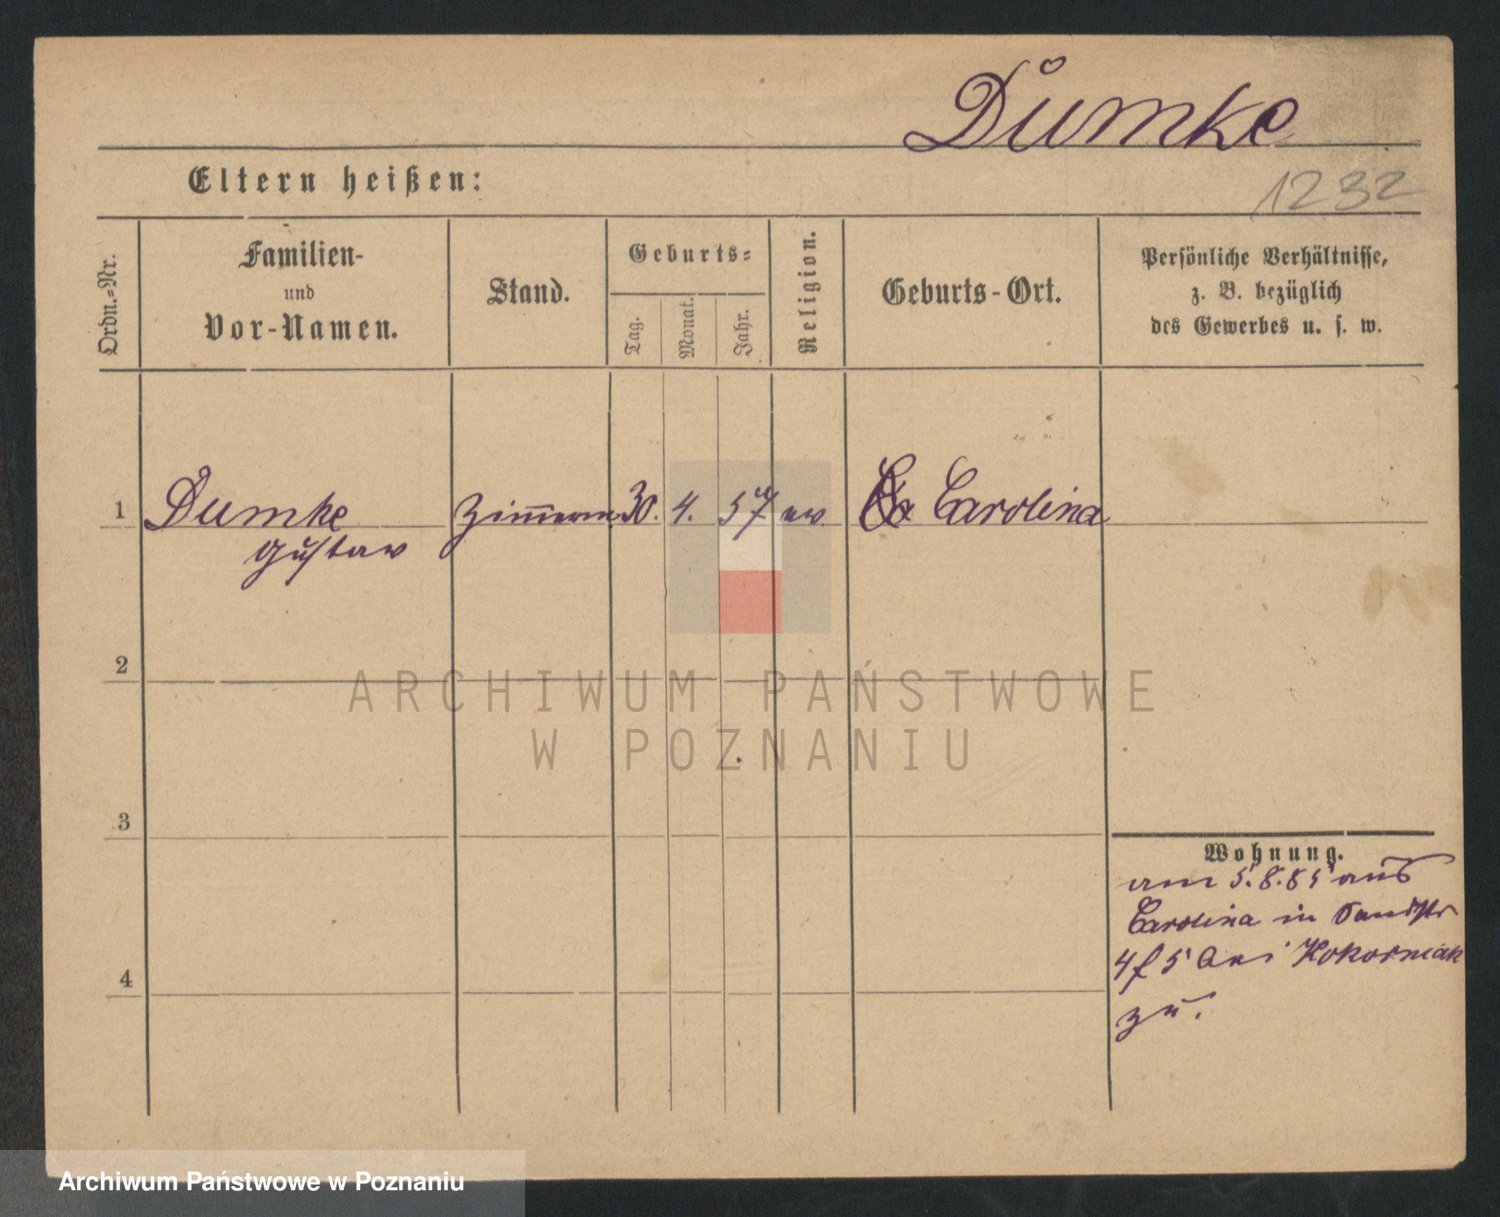 Důmke
Eltern heißen:
1232
Ordn.=Nr.
Familien-
und
Vor-Namen.
Stand.
Geburts=
Tag.
Monat.
Jahr.
Religion.
Geburts-Ort.
Persönliche Verhältnisse,
z. B. bezüglich
des Gewerbes u. s. w.
1 Dumke Zim̅erm 30. 4. 57 ev Carolina
Gustav
2
3
4
Wohnung.
am 5.8.85 aus
Carolina in Sandstr
4 f 5 bei Kokorniak
zu.
ARCHIWUM PAŃSTWOWE
W POZNANIU
Archiwum Państwowe w Poznaniu